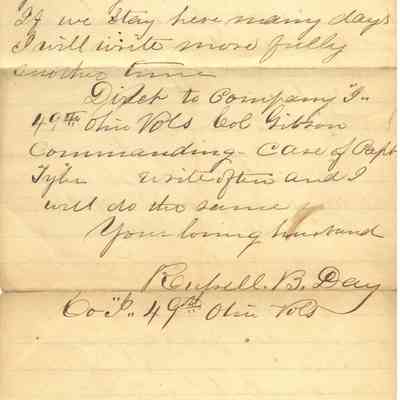 If we stay here many days
I will write more fully
another time
Dirct to Company "I"
49th Ohio Vols Col Gibson
Commanding - Care of Capt
Tyler write often and I
will do the same
Your loving husband
Russell. B. Day
Co "I" 49th Ohio Vols